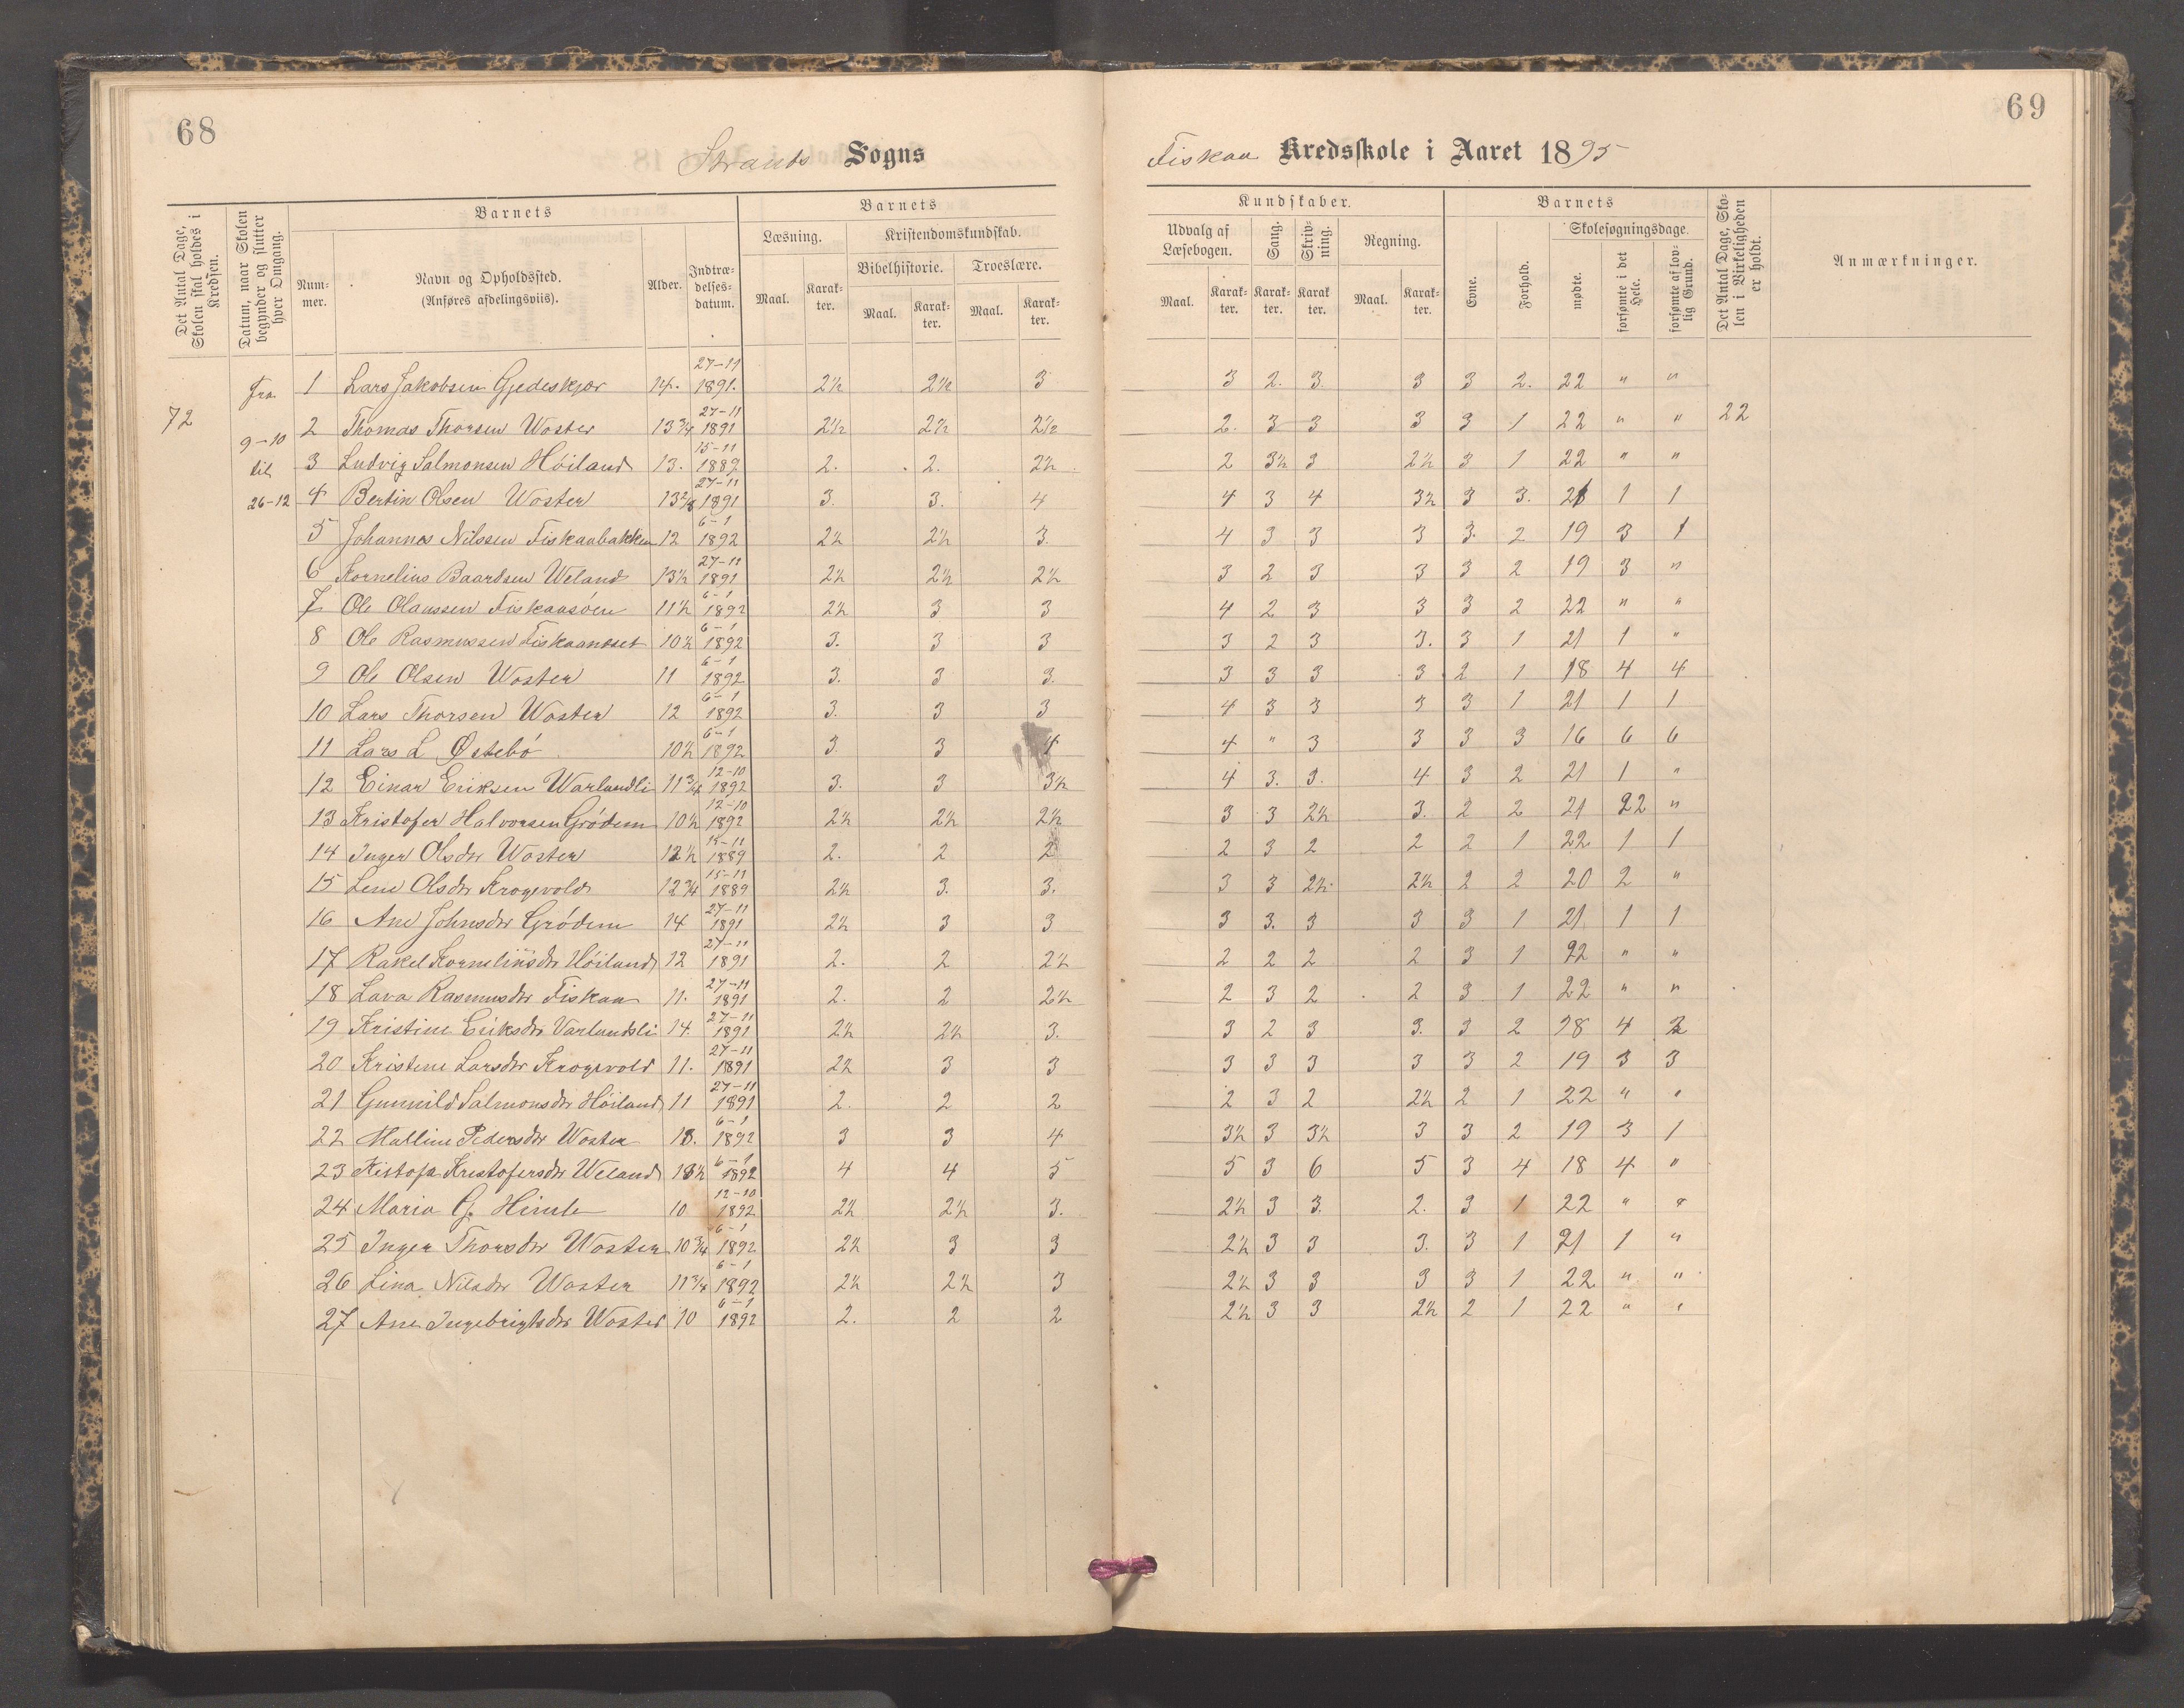 68
69
Strands Sogns
Fiskaa Kredsskole i Aaret 1895
Det Antal Dage, Skolen skal holdes i Kredsen.
Datum, naar Skolen begynder og slutter hver Omgang.
Barnets
Num-mer.
Navn og Opholdssted.
(Anføres afdelingsviis).
Alder.
Indtræ-delses-datum.
Barnets
Læsning.
Maal. Karak-ter.
Kristendomskundskab.
Bibelhistorie. Troeslære.
Maal. Karak-ter. Maal. Karak-ter.
Kundskaber.
Udvalg af Læsebogen.
Maal. Karak-ter.
Sang. Karak-ter.
Skriv-ning. Karak-ter.
Regning.
Maal. Karak-ter.
Barnets
Evne. Forhold.
Skolesøgningsdage.
mødte. forsømte i det Hele. forsømte af lov-lig Grund.
Det Antal Dage, Sko-len i Virkeligheden er holdt.
Anmærkninger.
72
Fra
9-10
til
26-12
22
1 Lars Jakobsen Gjedeskjær 14. 27-11 1891. 2½ 2½ 3 3 2. 3. 3 3 2. 22 " "
2 Thomas Thorsen Woster 13¾ 27-11 1891 2½ 2½ 2½ 2. 3 3 3 3 1 22 " "
3 Ludvig Salmonsen Höiland 13. 15-11 1889 2. 2. 2½ 2 3½ 3 2½ 3 1 22 " "
4 Bertin Olsen Woster 27-11 1891 3. 3. 4 4 3 4 3½ 3 3. 21 1 1
5 Johannes Nilssen Fiskaabakken 12 6-1 1892 2½ 2½ 3. 4 3 3 3 3. 2 19 3 1
6 Kornelius Baardsen Weland 13½ 27-11 1891 2½ 2½ 2½ 3 2 3 3 3 2 19 3 "
7 Ole Olaussen Fiskaasöen 11½ 6-1 1892 2½ 3 3 4 2 3 3 3 2 22 " "
8 Ole Rasmussen 10½ 6-1 1892 3. 3 3 3 2 3 3. 3 1 21 1 "
9 Ole Olsen Woster 11 6-1 1892 3. 3 3. 3 3 3 3 2 1 18 4 4
10 Lars Thorsen Woster 12 6-1 1892 3. 3 3 4 3 3 3 3 1 21 1 1
11 Lars L Østebö 10½ 6-1 1892 3. 3 4 4 " 3 3 3 3 16 6 6
12 Einar Eriksen Warlandli 11¾ 12-10 1892 3. 3 3½ 4 3. 3. 4 3 2 21 1 "
13 Kristofer Halvorsen Grödem 10½ 12-10 1892 2½ 2½ 2½ 3 3 2½ 3. 2 2 21 22 "
14 Inger Olsdr Woster 12½ 15-11 1889 2. 2 2 2 3 2 2 2 1 22 1 1
15 Lene Olsdr Krogevold 12¾ 15-11 1889 2½ 3. 3. 3 3 2½ 2½ 2 2 20 2 "
16 Ane Johnsdr Grödem 14 27-11 1891 2½ 3 3 3 3. 3 3 3 1 21 1 1
17 Rakel Korneliusdr Höiland 12 27-11 1891 2. 2 2½ 2 2 2 2 3 1 22 " "
18 Lava Rasmusdr Fiskaa 11. 27-11 1891 2. 2 2½ 2 3 2 2 3 1 22 " "
19 Kristine Eriksdr Varlandsli 14. 27-11 1891 2½ 2½ 3. 3 2 3 3. 3 2 18 4
20 Kristene Larsdr Krogevold 11. 27-11 1891 2½ 3 3 3 3 3 3 3 2 19 3 3
21 Gunnild Salmonsdr Höiland 11 27-11 1891 2. 2 2 2 3 2 2½ 2 1 22 " "
22 Malline Pedersdr Woster 13. 6-1 1892 3 3 4 3½ 3 3½ 3 3 2 19 3 1
23 Kistofa Kristofersdr Weland 13½ 6-1 1892 4 4 5 5 3 6 5 3 4 18 4 "
24 Maria G. Himle 10 12-10 1892 2½ 2½ 3. 2½ 3 3. 2. 3 1 22 " "
25 Inger Thorsdr Woster 10¾ 6-1 1892 2½ 3 3 2½ 3 3 3. 3 1 21 1 "
26 Lina Nilsdr Woster 11¾ 6-1 1892 2½ 2½ 3 2½ 3 3 3 3 1 22 " "
27 Ane Ingebrigtsdr Woster 10 6-1 1892 2. 2 2 2½ 3 3 2½ 2 1 22 " "